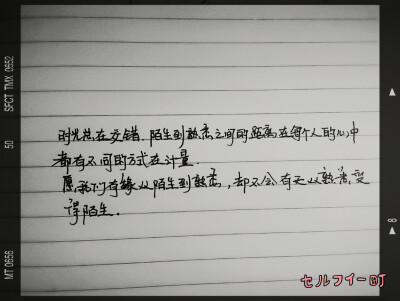 时光总在交错.陌生到熟悉之间的距离在每个人的心中
都有不同的方式在计量.
愿我们有缘从陌生到熟悉,却不会有天从熟悉变
得陌生.
SFCT TMX 0652
50
MT 0656
8
セルフィー町